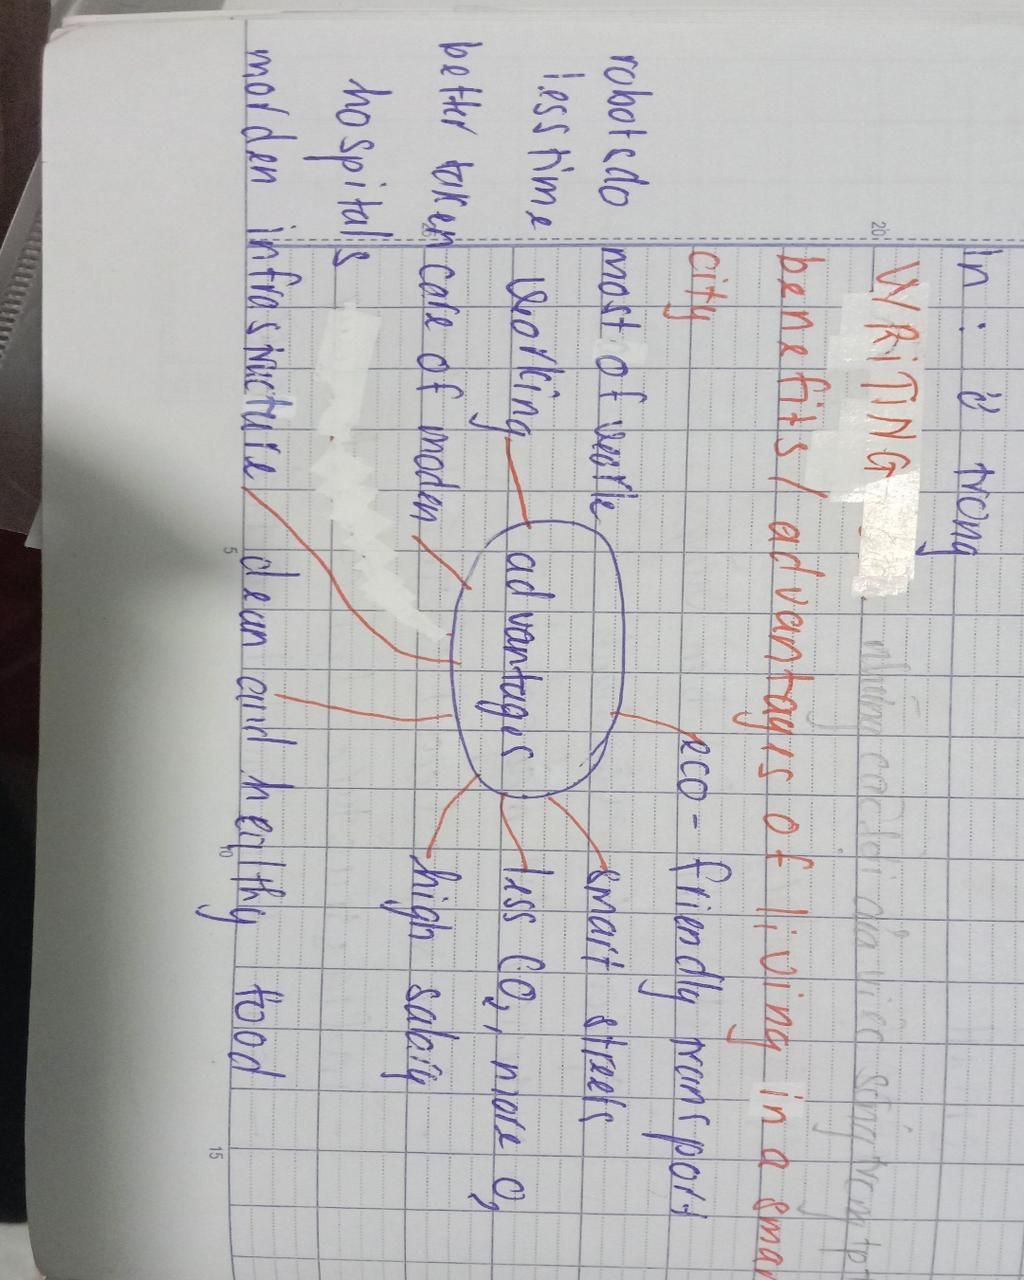 In : ở trong
WRITING
những cái lợi của việc sống trong tp
benefits / advantages of living in a smar
city
eco - friendly transport
robots do most of work
smart streets
less time working
advantages
less CO2, more O2
better taken care of moden
high salary
hospitals
morden infrastructure
clean and healthy food
20
5
10
15